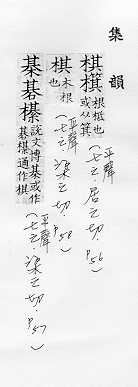 集韻
棋 根柢也
或从箕
(平聲 七之·居之切·P.56)
棋 木根
也
(平聲 七之·渠之切·P.58)
棊碁 說文博棊或作
碁 通作棋
(平聲 七之·渠之切·P.57)